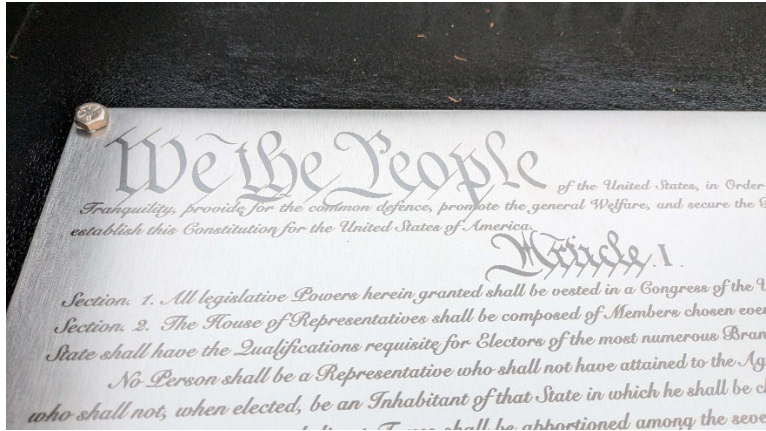 We the People of the United States, in Order
Tranquility, provide for the common defence, promote the general Welfare, and secure the
establish this Constitution for the United States of America.
Article. I.
Section. 1. All legislative Powers herein granted shall be vested in a Congress of the
Section. 2. The House of Representatives shall be composed of Members chosen
State shall have the Qualifications requisite for Electors of the most numerous
No Person shall be a Representative who shall not have attained to the
who shall not, when elected, be an Inhabitant of that State in which he shall be
shall be apportioned among the